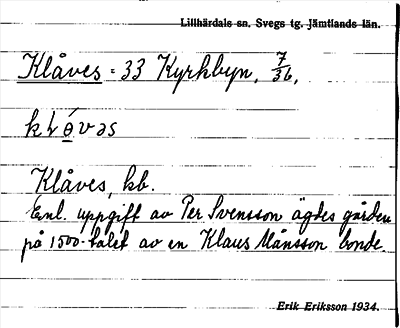 Lillhärdals sn. Svegs tg. Jämtlands län.
Klåves = 33 Kyrkbyn, 7/36,
Klåves, kb.
Enl. uppgift av Per Svensson ägdes gården
på 1500-talet av en Klaus Månsson bonde
Erik Eriksson 1934.